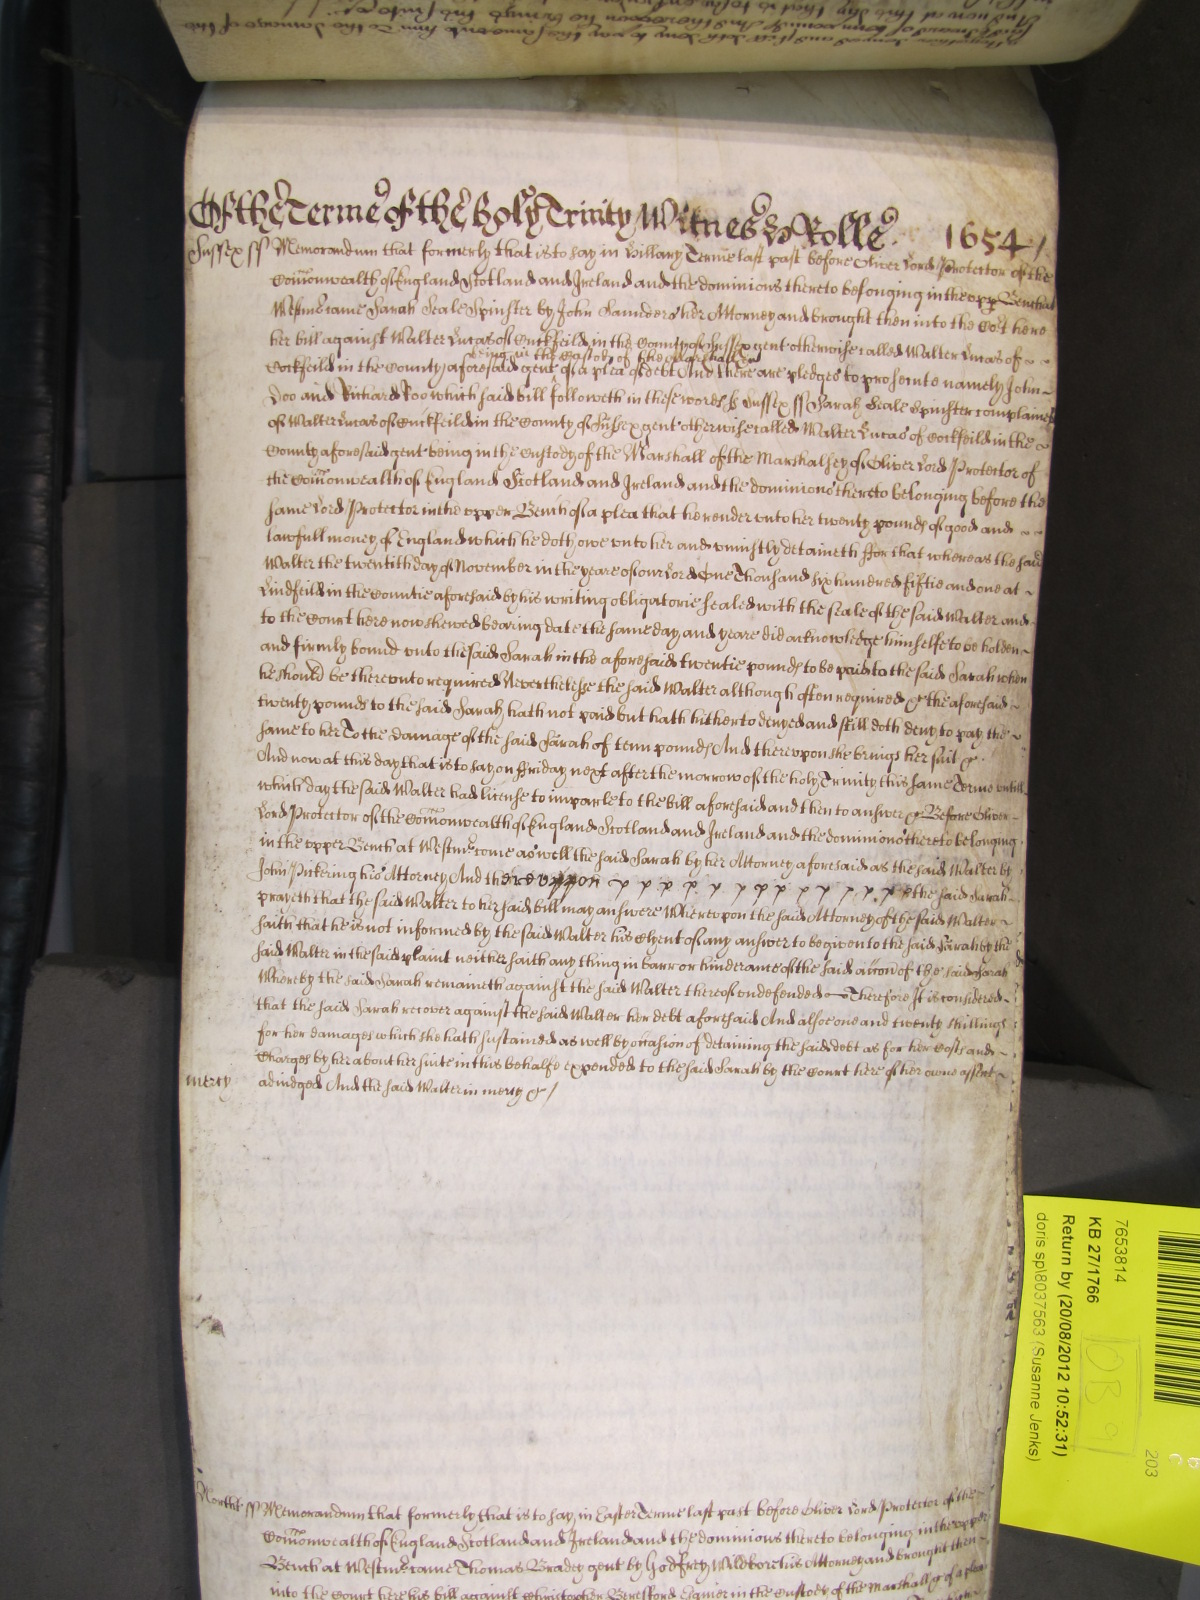 Of the Terme of the holy Trinity Witnes Rolle 1654
Sussex ss Memorandum that formerly that is to say in Hillary Terme last past before Oliver Lord Protector of the
Comonwealth of England Scotland and Ireland and the dominions thereto belonging in the upp Bench at
Westmr came Sarah Seale Spinster by John Saunders her Attorney and brought then into the Cort here
her bill against Walter Lucas of Cuckfeild in the County of Sussex gent otherwise called Walter Lucas of
being in the Custody of the Marshall
Cockfeild in the County aforesaid gent of a plea of debt And there are pledges to prosecute namely John
Doo and Richard Roo which said bill followeth in these words ss Sussex ss Sarah Seale Spinster complaines
of Walter Lucas of Cuckfeild in the County of Sussex gent otherwise called Walter Lucas of Cockfeild in the
County aforesaid gent being in the Custody of the Marshall of the Marshalsey of Oliver Lord Protector of
the Comonwealth of England Scotland and Ireland and the dominions thereto belonging before the
same Lord Protector in the upper Bench of a plea that he render unto her twenty pounds of good and
lawfull money of England which he doth owe unto her and uniustly detaineth ffor that whereas the said
Walter the twentith day of November in the yeare of our Lord One Thousand six hundred fiftie and one at
Lindfeild in the Countie aforesaid by his writing obligatorie sealed with the seale of the said Walter and
to the Court here now shewed bearing date the same day and yeare did acknowledge himselfe to be holden
and firmly bound unto the said Sarah in the aforesaid twentie pounds to be paid to the said Sarah when
he should be thereunto required Neverthelesse the said Walter although often required &c the aforesaid
twenty pounds to the said Sarah hath not paid but hath hitherto denyed and still doth deny to pay the
same to her To the damage of the said Sarah of tenn pounds And thereupon she brings her suit &c
And now at this day that is to say on ffriday next after the morrow of the holy Trinity this same Terme untill
which day the said Walter had license to imparle to the bill aforesaid and then to answer &c Before Oliver
Lord Protector of the Comonwealth of England Scotland and Ireland and the dominions thereto belonging
in the upper Bench at Westmr come as well the said Sarah by her Attorney aforesaid as the said Walter by
John Pickering his Attorney And thereuppon the said Sarah
prayeth that the said Walter to her said bill may answere Whereupon the said Attorney of the said Walter
saith that he is not informed by the said Walter his Clyent of any answer to be given to the said Sarah by the
said Walter in the said plaint neither saith any thing in barr or hinderance of the said accon of the said Sarah
Whereby the said Sarah remaineth against the said Walter thereof undefended Therefore It is considered
that the said Sarah recover against the said Walter her debt aforesaid And alsoe one and twenty shillings
for her damages which she hath sustained as well by occasion of detaining the said debt as for her Costs and
Charges by her about her suite in this behalfe expended to the said Sarah by the Court here of her owne assent
mercy adiudged And the said Walter in mercy &c /
ss Memorandum that formerly that is to say in Easter Terme last past before Oliver Lord Protector of the
Comonwealth of England Scotland and Ireland and the dominions thereto belonging in the upper
Bench at Westmr came Thomas Bradey gent by Godfrey Wildbore his Attorney and brought then
into the Court here his bill against Christopher Beresford Esquier in the Custody of the Marshall &c of a plea
7653814
KB 27/1766
Return by (20/08/2012 10:52:31)
doris sp\8037563 (Susanne Jenks)
203